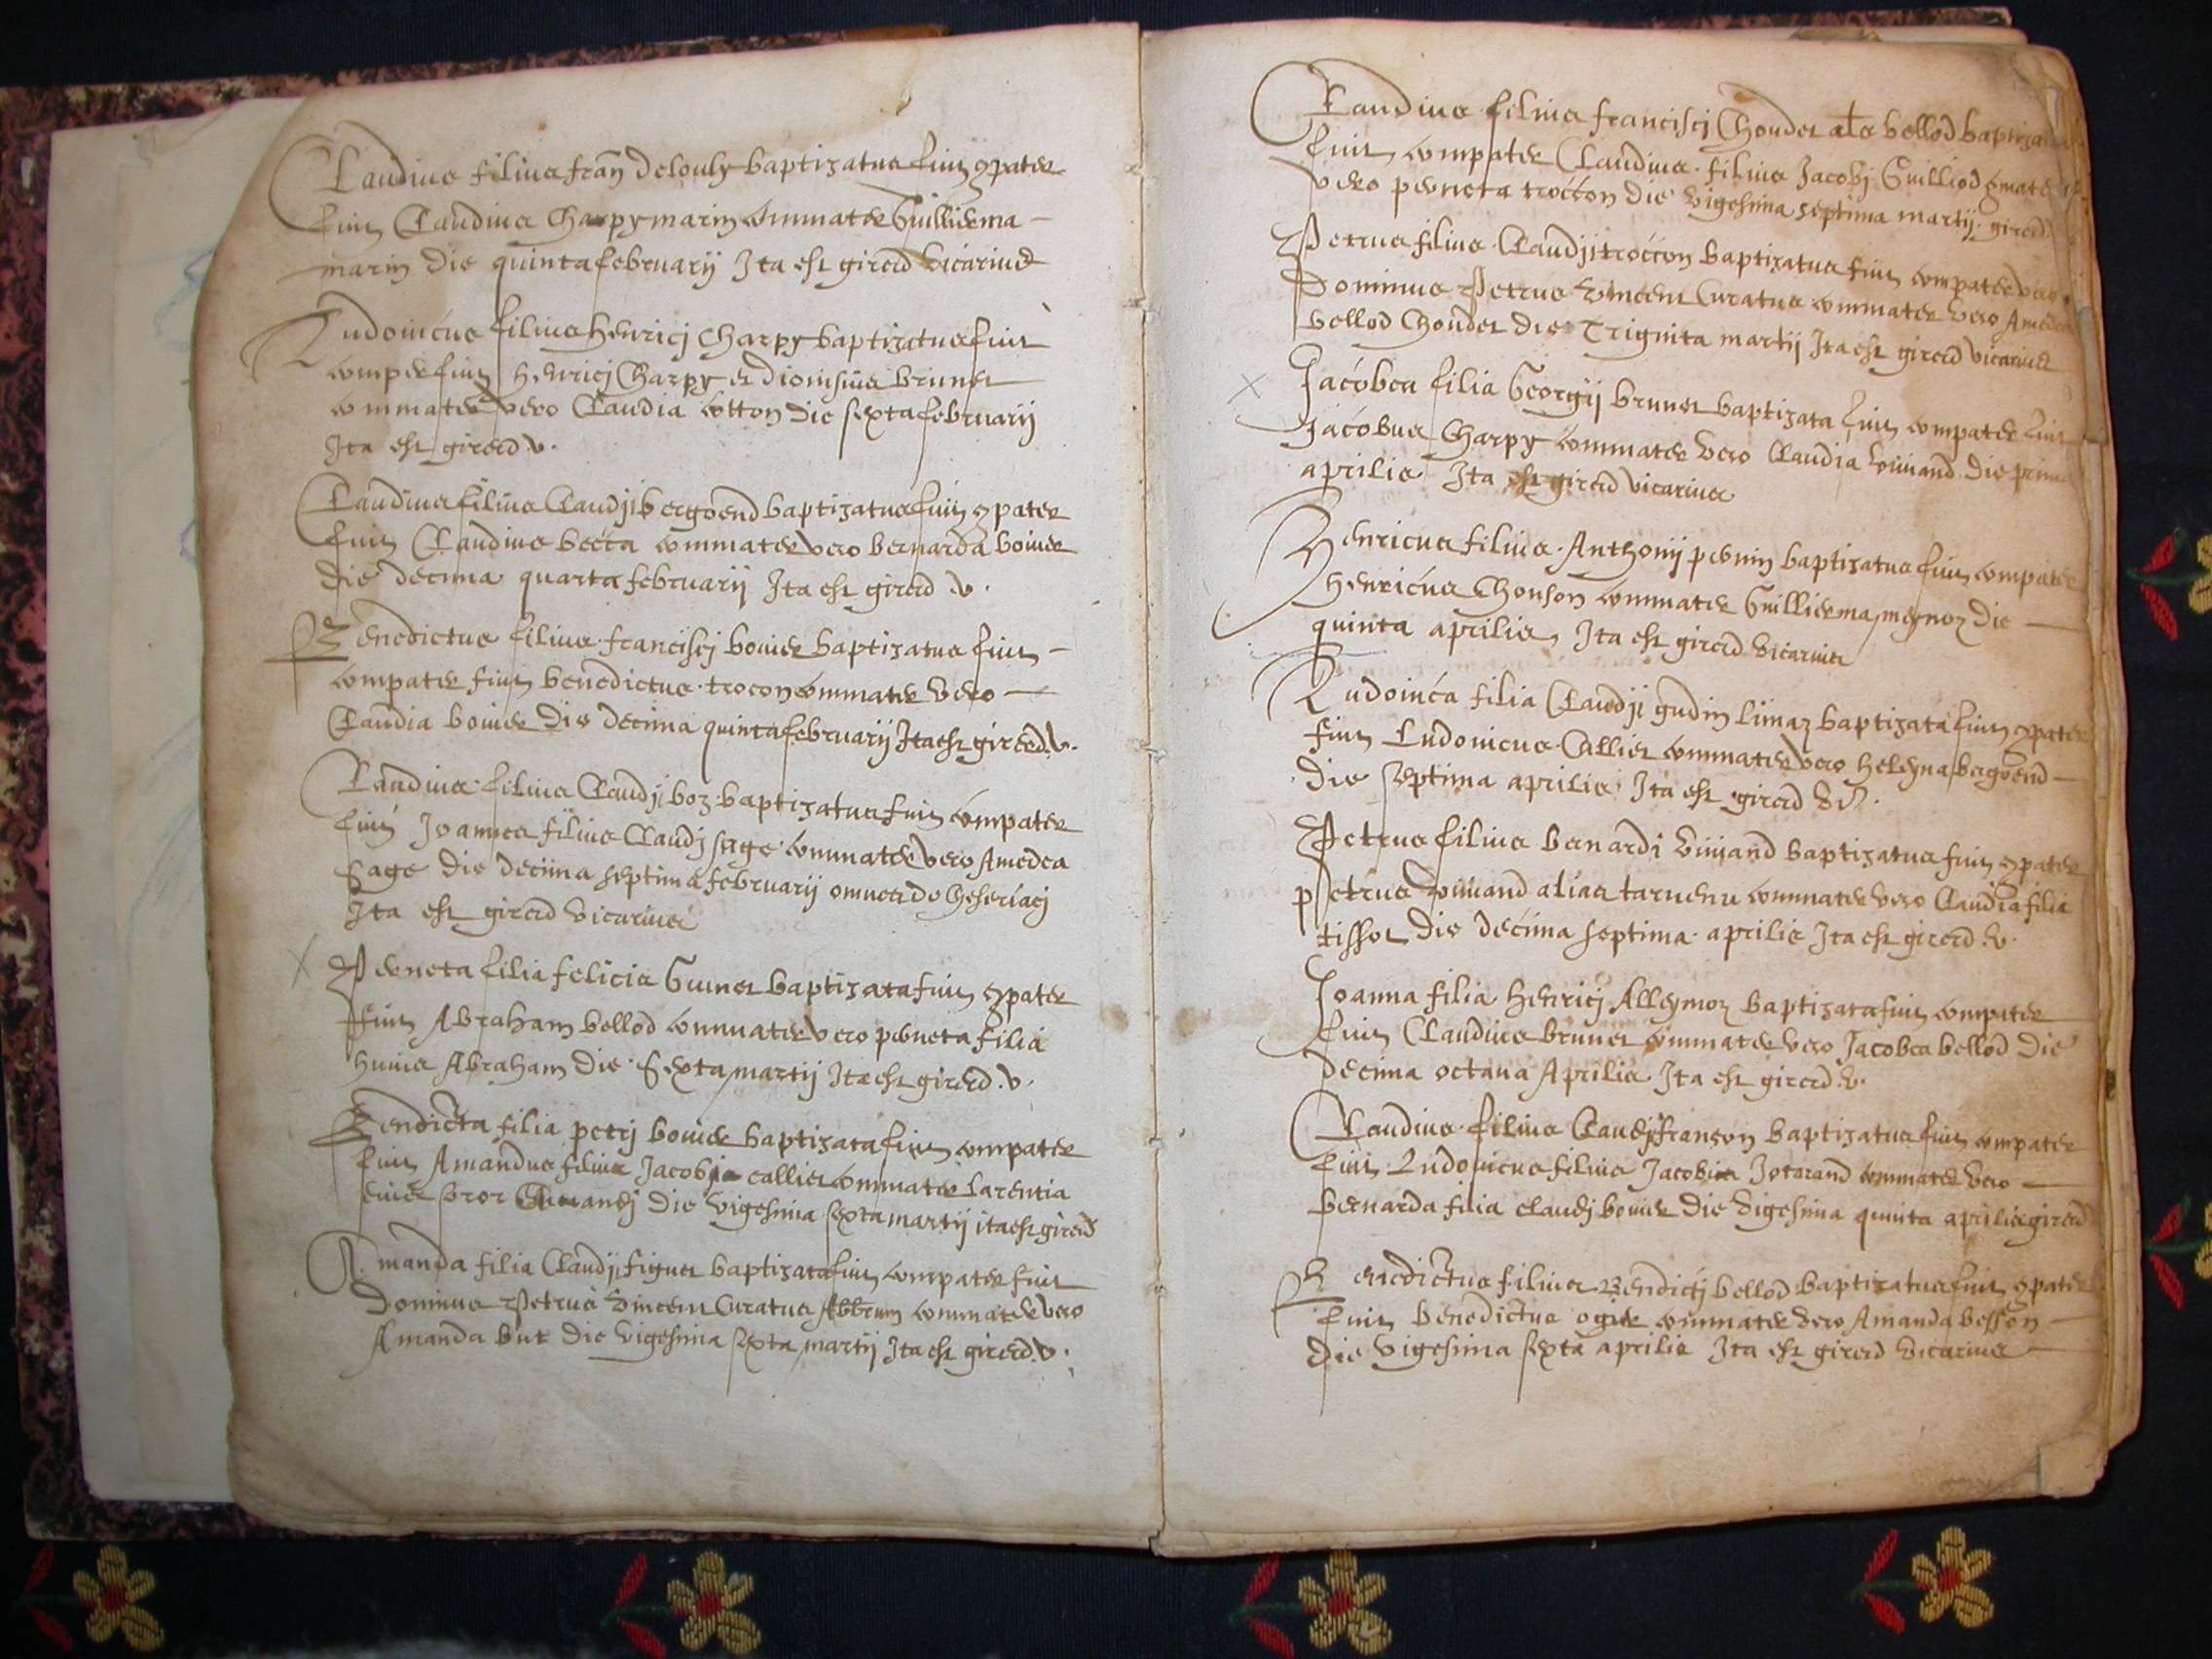 Claudius filius fran delouly baptizatus fuit 9pater
fuit Claudius Charpy marin commater Guillierma
marin die quinta februarij Ita est girerd vicarius
Ludovicus filius Henricj Charpy baptizatus fuit
comper fuit henricj Charpy et dionisius brunet
commater vero Claudia cotton die sexta februarij
Ita est girerd .v.
Claudius filius Claudij bergoend baptizatus fuit 9pater
fuit Claudius becta commater vero bernarda bouier
die decima quarta februarij Ita est girerd .v.
Benedictus filius franciscj bouier baptizatus fuit
compater fuit benedictus trocon commater vero
Claudia bouier die decima quinta februarij Ita est girerd .v.
Claudius filius Claudj boz baptizatus fuit compater
fuit Joannes filius Claudj sage commater vero Amedea
sage die decima septima februarij omnes de Cheseriacj
Ita est girerd vicarius
Perneta filia felicis Guinet baptizata fuit 9pater
fuit Abraham bellod commater vero perneta filia
huius Abraham die sexta martij Ita est girerd .v.
Bendicta filia petrj bouier baptizata fuit compater
fuit Amandus filius Jacobi callier commater larentia
eius soror Amandj die vigesima sexta martij ita est girerd
Amanda filia Claudij figuet baptizata fuit compater fuit
Dominus Petrus Vincent Curatus commater vero
Amanda but die vigesima sexta martij Ita est girerd .v.
Claudius filius franciscj Chondet als bellod baptizatus
fuit compater Claudius filius Jacobj Guilliod 9mater
vero perneta trocton die vigesima septima martij girerd
Petrus filius Claudij trocton baptizatus fuit compater vero
Dominus Petrus Vincent Curatus commater vero Amedea
bellod Chondet die Triginta martij Ita est girerd vicarius
Jacobea filia Georgij brunet baptizata fuit compater fuit
Jacobus Charpy commater vero Claudia vuiuand die prima
aprilis Ita est girerd vicarius
Henricus filius Anthonij pernin baptizatus fuit compater
Henricus Chonson commater Guillierma meynoz die
quinta aprilis Ita est girerd vicarius
Ludovica filia Claudij gudin limaz baptizata fuit 9pater
fuit Ludovicus Callier commater vero heleyna bergoend
die septima aprilis Ita est girerd
Petrus filius bernardi vuiuand baptizatus fuit 9pater
petrus vuiuand alias taruenu commater vero Claudia filia
tissot die decima septima aprilis Ita est girerd .v.
Joanna filia Henricj Alleymoz baptizata fuit compater
fuit Claudius brunet commater vero Jacobea bellod die
decima octaua Aprilis Ita est girerd .v.
Claudius filius Claudij françon baptizatus fuit compater
fuit Ludovicus filius Jacobi Jotorand commater vero
bernarda filia claudj bouier die vigesima quinta aprilis girerd
Benedictus filius Bendictj bellod baptizatus fuit 9pater
fuit benedictus ogier commater vero Amanda besson
die vigesima sexta aprilis Ita est girerd vicarius